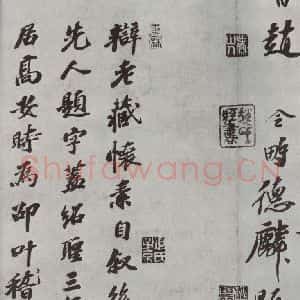 趙令畤德麟
辯老藏懷素自叙後
先人題字蓋紹聖三
居高安時為邵叶稽
Shufawang.CN